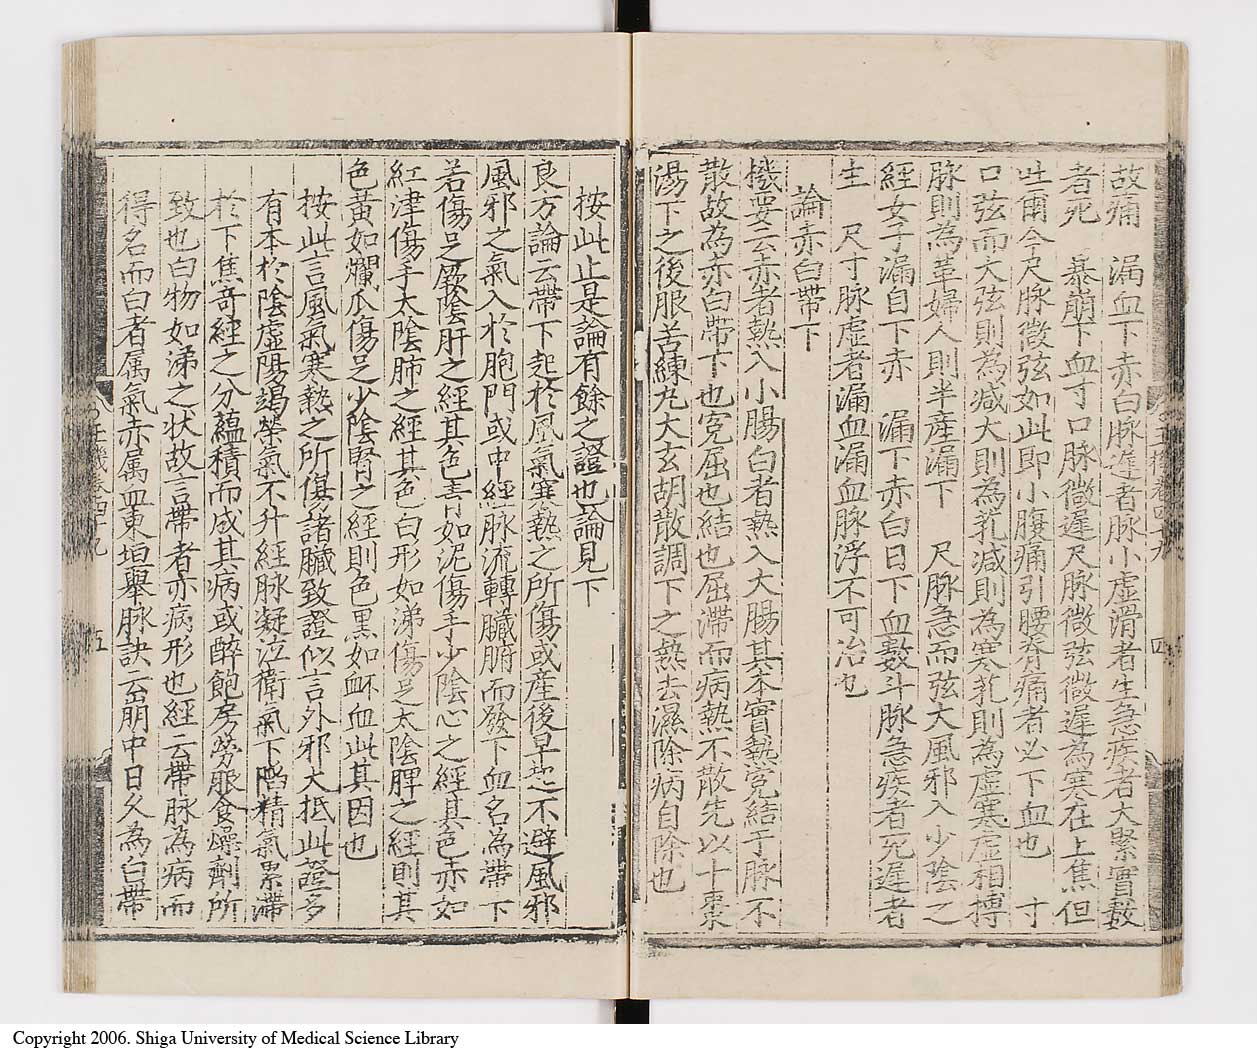 故痛　漏血下赤白脉遅者脉小虚滑者生急疾者大緊實數
者死　暴崩下血寸口脉微遲尺脉微弦微遲為寒在上焦但
吐爾今尺脉微弦如此即小腹痛引腰脊痛者必下血也　寸
口弦而大弦則為減大則為芤減則為寒芤則為虚寒虚相搏
脉則為革婦人則半產漏下　尺脉急而弦大風邪入少陰之
經女子漏白下赤　漏下赤白日下血數斗脉急疾者死遲者
生　尺寸脉虚者漏血漏血脉浮不可治也
論赤白帶下
機要云赤者熱入小腸白者熱入大腸其本實熱寃結于脉不
散故為赤白帶下也寃屈也結也屈滯而病熱不散先以十棗
湯下之後服苦練丸大玄胡散調下之熱去濕除病自除也
按此止是論有餘之證也論見下
良方論云帶下起於風氣寒熱之所傷或産後早起不避風邪
風邪之氣入於胞門或中經脉流轉臓腑而發下血名為帶下
若傷足厥陰肝之經其色青如泥傷手少陰心之經其色赤如
紅津傷手太陰肺之經其色白形如涕傷足太陰脾之經則其
色黄如爛瓜傷足少陰腎之經則色黒如衃血此其因也
按此言風氣寒熱之所傷諸臓致證似言外邪大抵此證多
有本於陰虚陽竭榮氣不升經脉凝泣衛氣下陷精氣累滯
於下焦竒經之分蘊積而成其病或醉飽房勞服食燥劑所
致也白物如涕之状故言帶者亦病形也經云帶脉為病而
得名而白者属氣赤属血東垣舉脉訣云崩中日久為白帶
卷四十九
四
玉機卷四十九
五
Copyright 2006. Shiga University of Medical Science Library